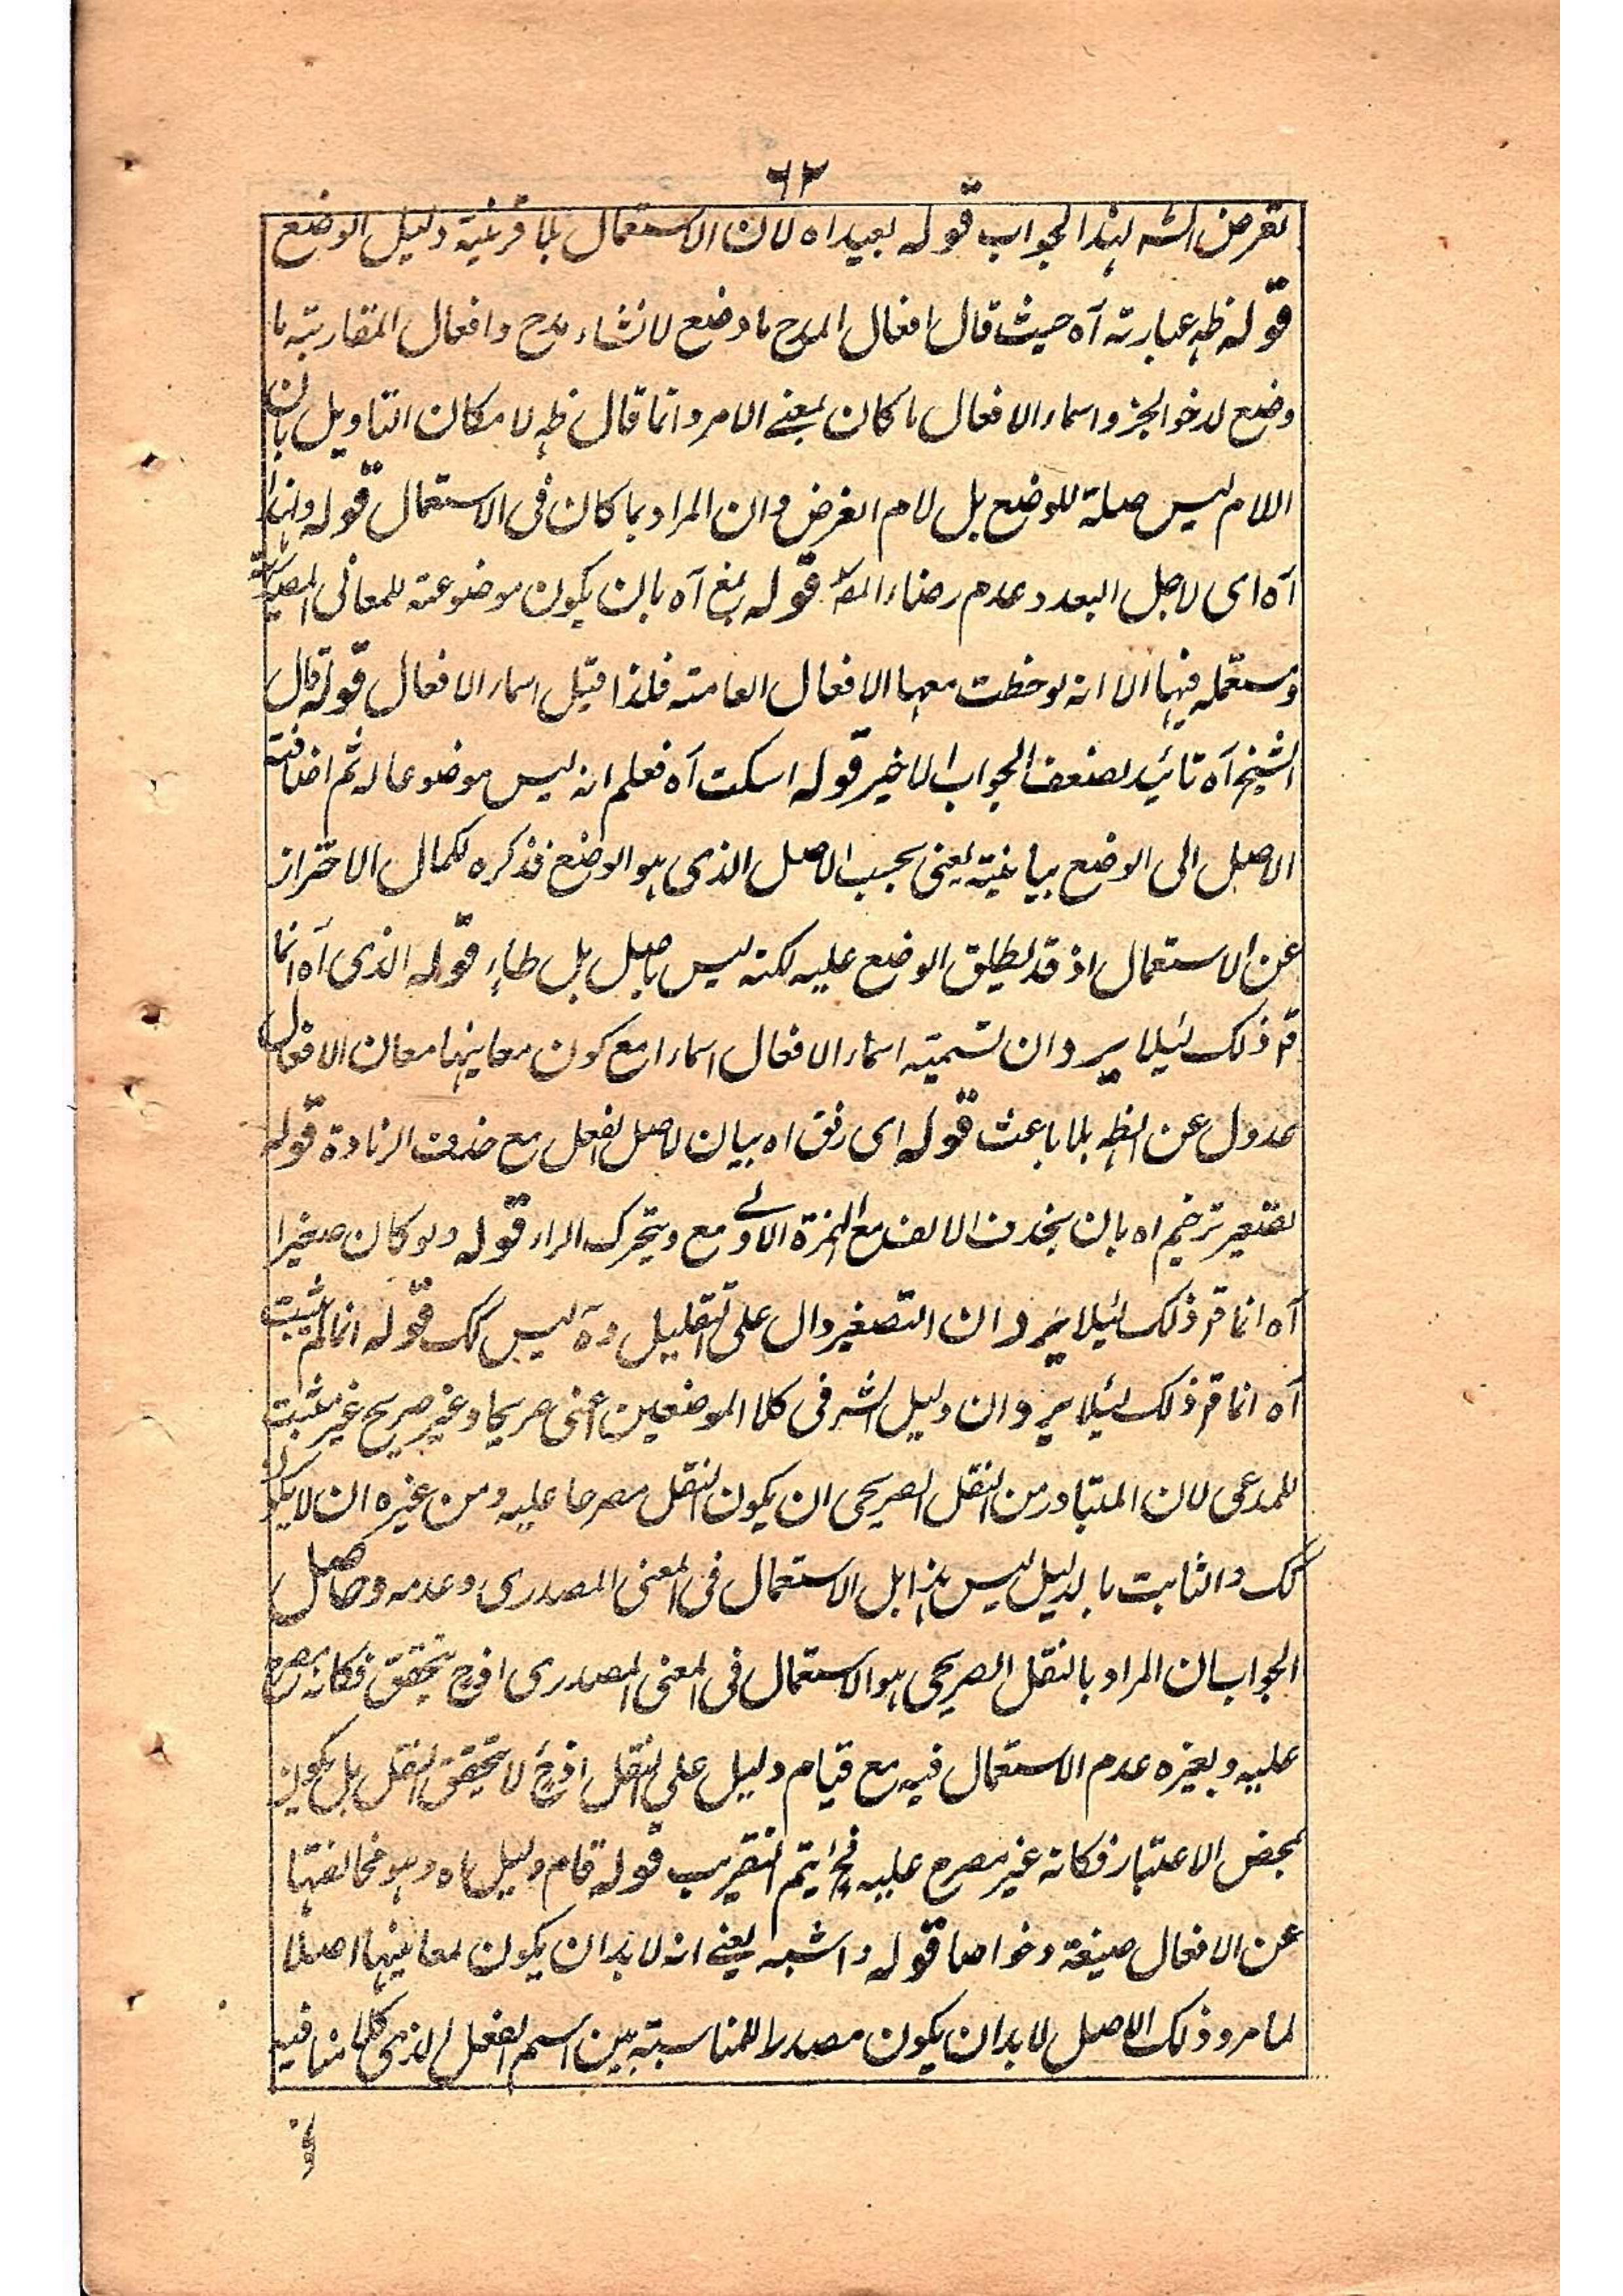 ٦٢
تعرض الشہ لہذا الجواب قولہ بعیداہ لان الاستعمال بلا قرینۃ دلیل الوضع
قولہ ظہ عبارتہ آہ حیث قال افعال المدح ما وضع لانشاء مدح وافعال المقاربۃ ما
وضع لدنو الخبر واسماء الافعال ما کان بمعنے الامر وانما قال ظہ لامکان التاویل بان
اللام لیس صلۃ للوضع بل لام الغرض وان المراد بما کان فی الاستعمال قولہ ولہذا
آہ ای لاجل البعد وعدم رضاء المصؒ قولہ بمنع آہ بان یکون موضوعۃ للمعانی المصدریۃ
ومستعملہ فیہا الا انہ لوحظت معہا الافعال العامۃ فلذا قیل اسماء الافعال قولہ قال
الشیخ آہ تائید لضعف الجواب الاخیر قولہ اسکت آہ فعلم انہ لیس موضوعا لہ ثم اضافتہ
الاصل الی الوضع بیانیۃ یعنی بحسب الاصل الذی ہو الوضع فذکرہ لکمال الاحتراز
عن الاستعمال اذ قد یطلق الوضع علیہ لکنہ لیس باصل بل طار قولہ الذی آہ انما
قر ذلک لئیلا یرد ان تسمیتہ اسماء الافعال اسماء مع کون معانیہا معان الافعال
عدول عن الظہ بلا باعث قولہ ای رفق اہ بیان لاصل الفعل مع حذف الزیادۃ قولہ
تصغیر ترخیم اہ بان یحذف الالف مع الہمزۃ الاولے مع ویتحرک الراء قولہ ولو کان صغیرا
آہ انما قر ذلک لئیلا یرد ان التصغیر دال علی التقلیل وہ لیس کک قولہ انما لم یثبت
آہ انما قر ذلک لئیلا یرد ان دلیل الشہ فی کلا الموضعین اعنی صریحا وغیر صریح غیر مثبت
للمدعی لان المتبادر من النقل الصریحی ان یکون النقل مصرحا علیہ ومن غیرہ ان لا یکون
کک والثابت بالدلیل لیس ہذا بل الاستعمال فی المعنی المصدری وعدمہ وحاصل
الجواب ان المراد بالنقل الصریحی ہو الاستعمال فی المعنی المصدری اذ ح یتحقق فکانہ مصرح
علیہ وبغیرہ عدم الاستعمال فیہ مع قیام دلیل علی النقل اذ ح لا یتحقق النقل بل یکون
بمحض الاعتبار فکانہ غیر مصرح علیہ فح یتم التقریب قولہ قام دلیل اہ وہو مخالفتہا
عن الافعال صیغۃ وخواصا قولہ واشبہ یعنے انہ لا بد ان یکون لمعانیہا اصلا
لما مر وذلک الاصل لا بد ان یکون مصدرا للمناسبۃ بین اسم الفعل الذی کلامنا فیہ